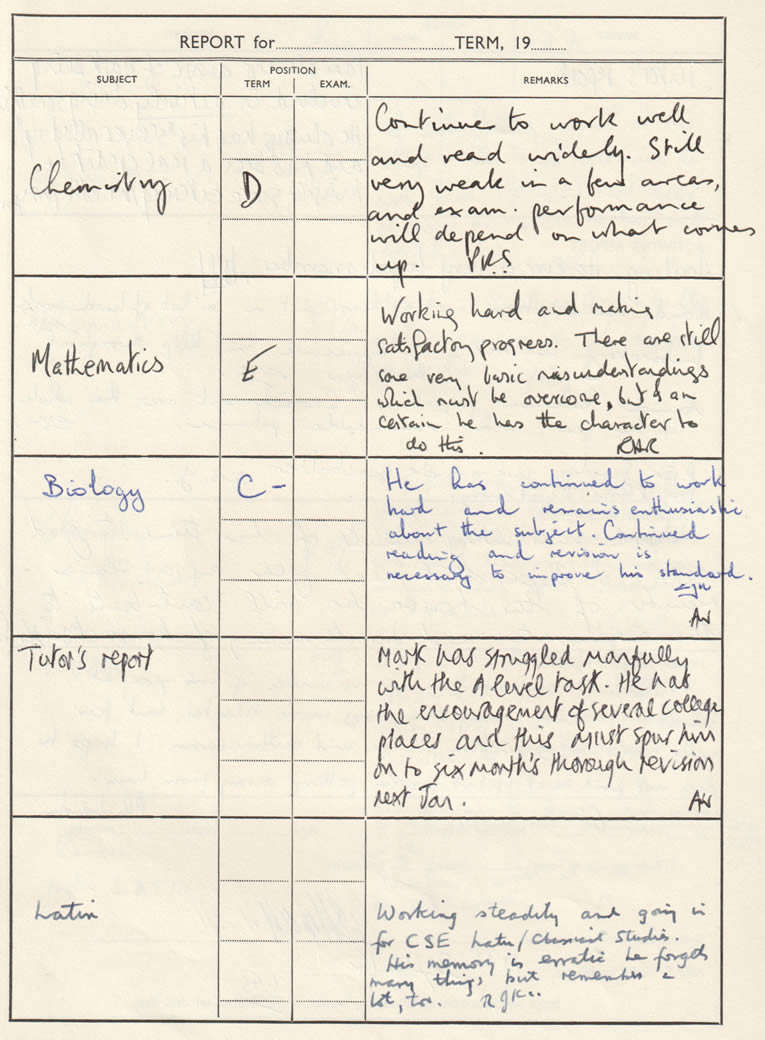 REPORT for TERM, 19
SUBJECT
POSITION
TERM EXAM.
REMARKS
Chemistry
D
Continue to work well
and read widely. Still
very weak in a few areas,
and exam. performance
will depend on what comes
up. PRS
Mathematics
E
Working hard and making
satisfactory progress. There are still
some very basic misunderstandings
which must be overcome, but I am
certain he has the character to
do this. RHR
Biology
C -
He has continued to work
hard and remains enthusiastic
about the subject. Continued
reading and revision is
necessary to improve his standard.
AW
Tutor's report
Mark has struggled manfully
with the A level task. He has
the encouragement of several college
places and this must spur him
on to six month's thorough revision
next Jan. AW
Latin
Working steadily and going in
for CSE Latin/Classical Studies.
His memory is erratic he forgets
many things but remembers a
lot, too. RJK..